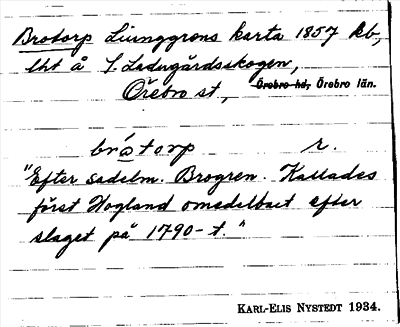 Brotorp Ljunggrens karta 1857 kb,
lht å S. Ladugårdsskogen,
Örebro st, Örebro hd, Örebro län.
bråtorp r.
"Efter sadelm. Brogren. Kallades
först Hogland omedelbart efter
slaget på 1790-t."
KARL-ELIS NYSTEDT 1934.